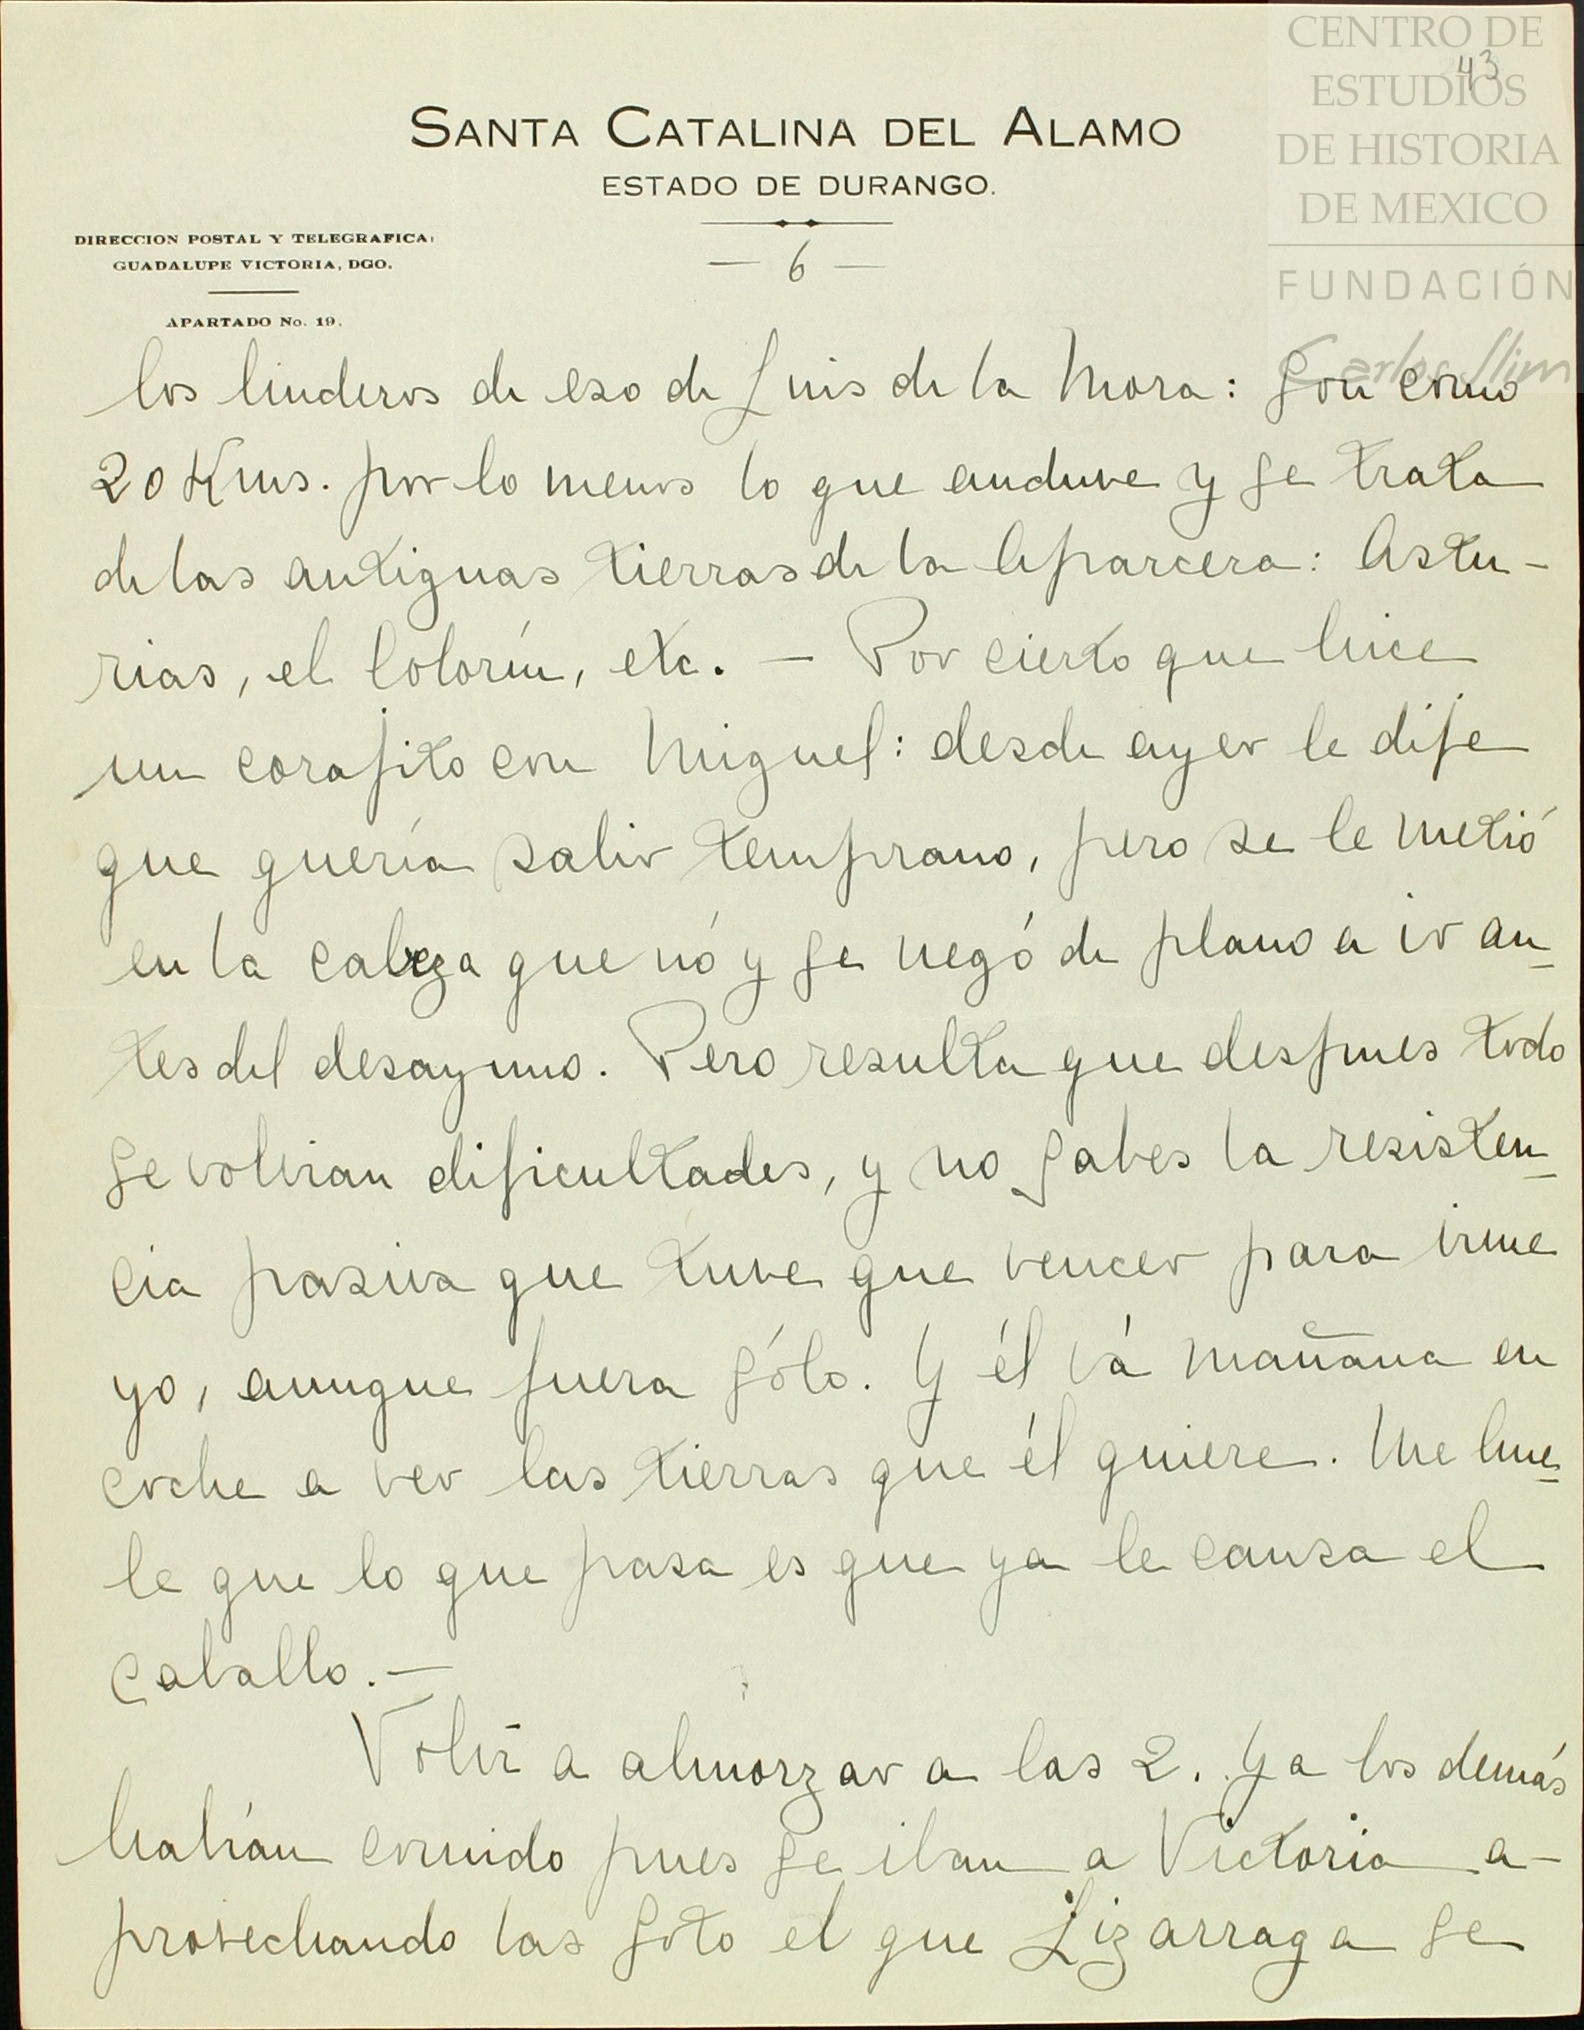 CENTRO DE
ESTUDIOS
DE HISTORIA
DE MEXICO
FUNDACIÓN
Carlos Slim
43
SANTA CATALINA DEL ALAMO
ESTADO DE DURANGO.
DIRECCION POSTAL Y TELEGRAFICA:
GUADALUPE VICTORIA, DGO.
APARTADO No. 19.
— 6 —
los linderos de eso de Luis de la Mora: son como
20 Kms. por lo menos lo que anduve y se trata
de las antiguas tierras de la Aparcera: Astu-
rias, el Colorín, etc. — Por cierto que hice
un corajito con Miguel: desde ayer le dije
que quería salir temprano, pero se le metió
en la cabeza que nó y se negó de plano a ir an-
tes del desayuno. Pero resulta que despues todo
se volvian dificultades, y no sabes la resisten-
cia pasiva que tuve que vencer para irme
yo, aunque fuera sólo. Y él vá mañana en
coche a ver las tierras que él quiere. Me hue-
le que lo que pasa es que ya le cansa el
caballo. —
Volví a almorzar a las 2. Ya los demás
habían comido pues se iban a Victoria a-
provechando las Soto el que Lizarraga se